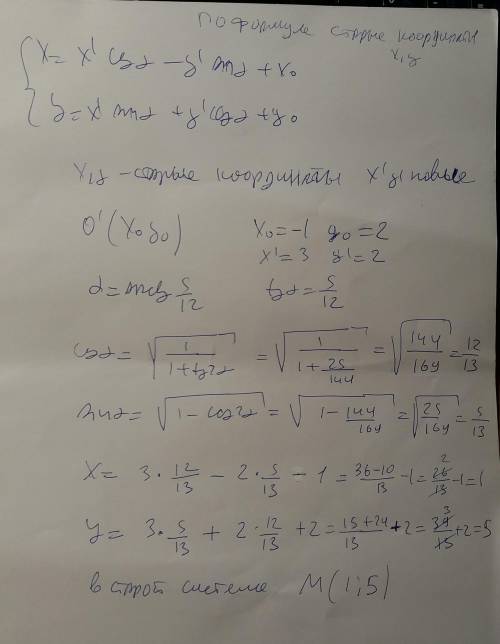 по формуле старые координаты
x,y
x = x' cos α - y' sin α + x₀
y = x' sin α + y' cos α + y₀
x,y - старые координаты x'y' новые
O'(x₀ y₀) x₀ = -1 y₀ = 2
x' = 3 y' = 2
α = arctg 5/12 tg α = 5/12
cos α = √(1/(1+tg²α)) = √(1/(1+25/144)) = √(144/169) = 12/13
sin α = √(1-cos²α) = √(1-144/169) = √(25/169) = 5/13
x = 3·12/13 - 2·5/13 - 1 = (36-10)/13 - 1 = 26/13 - 1 = 1
y = 3·5/13 + 2·12/13 + 2 = (15+24)/13 + 2 = 39/13 + 2 = 5
в старой системе M(1;5)